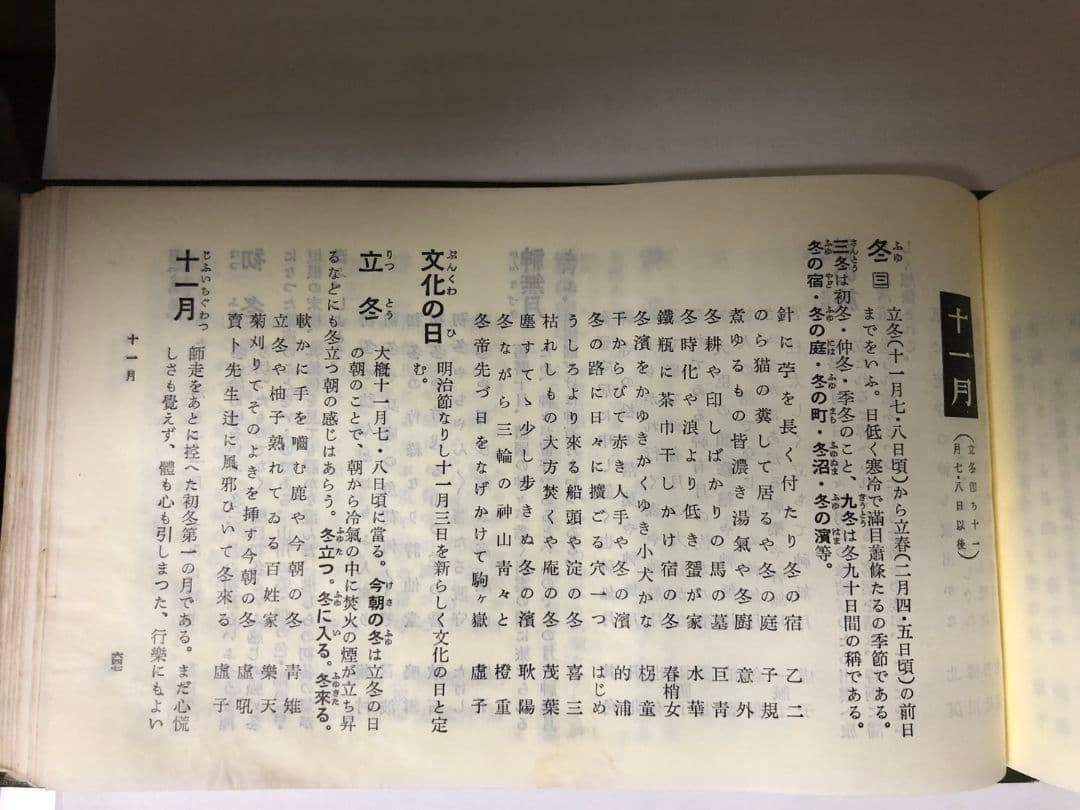 十一月
(立冬卽ち十一
月七・八日以後)
冬 三 立冬(十一月七・八日頃)から立春(二月四・五日頃)の前日
までをいふ。日低く寒冷で滿目蕭條たるの季節である。
三冬は初冬・仲冬・季冬のこと、九冬は冬九十日間の稱である。
冬の宿・冬の庭・冬の町・冬沼・冬の濱等。
針に苧を長く付たり冬の宿 乙二
のら猫の糞して居るや冬の庭 子規
煮ゆるもの皆濃き湯氣や冬廚 意外
冬耕や印しばかりの馬の墓 巨青
冬時化や浪より低き蜑が家 水華
鐵瓶に茶巾干しかけ宿の冬 春梢女
冬濱をかゆきかくゆき小犬かな 柺童
干からびて赤き人手や冬の濱 的浦
冬の路に日々に擴ごる穴一つ はじめ
うしろより來る船頭や淀の冬 喜三
枯れしもの大方焚くや庵の冬 茂葉
塵すてゝ少し步きぬ冬の濱 耿陽
冬ながら三輪の神山青々と 橙重
冬帝先づ日をなげかけて駒ヶ嶽 虛子
文化の日 明治節なりし十一月三日を新らしく文化の日と定
む。
立冬 大槪十一月七・八日頃に當る。今朝の冬は立冬の日
の朝のことで、朝から冷氣の中に焚火の煙が立ち昇
るなどにも冬立つ朝の感じはあらう。冬立つ。冬に入る。冬來る。
軟かに手を嚙む鹿や今朝の冬 青雉
立冬や柚子熟れてゐる百姓家 樂天
菊刈りてそのよきを挿す今朝の冬 虛吼
賣卜先生辻に風邪ひいて冬來る 虛子
十一月 師走をあとに控へた初冬第一の月である。まだ心慌
しさも覺えず、體も心も引しまつた、行樂にもよい
十一月